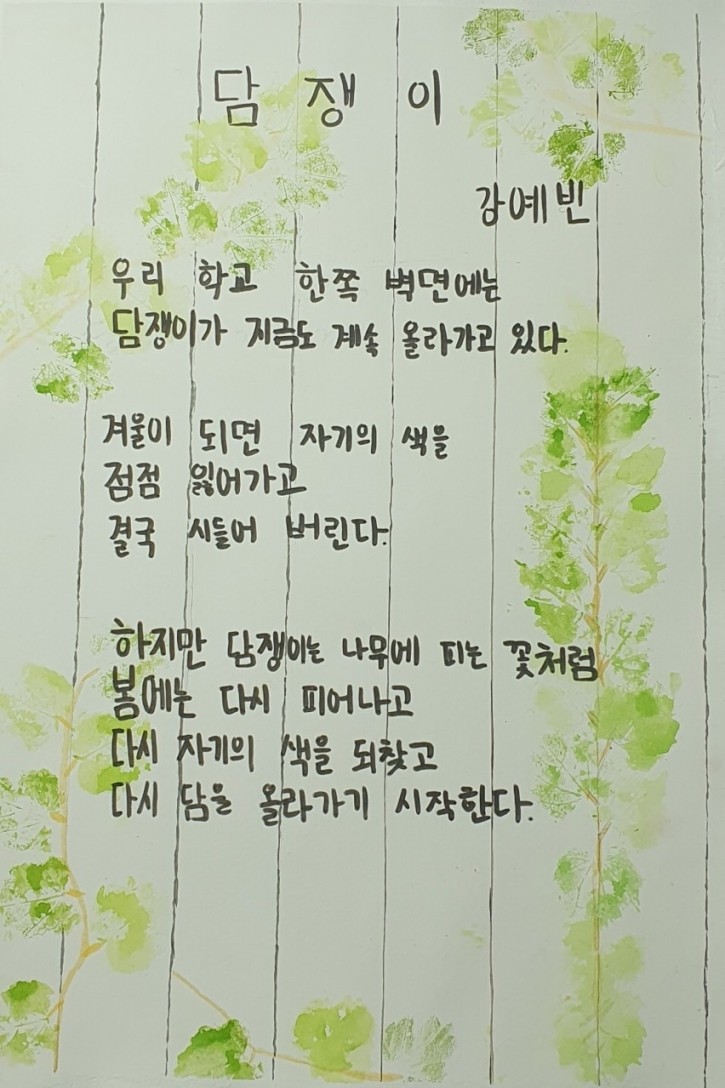 담쟁이
강예빈
우리 학교 한쪽 벽면에는
담쟁이가 지금도 계속 올라가고 있다.
겨울이 되면 자기의 색을
점점 잃어가고
결국 시들어 버린다.
하지만 담쟁이는 나무에 피는 꽃처럼
봄에는 다시 피어나고
다시 자기의 색을 되찾고
다시 담을 올라가기 시작한다.